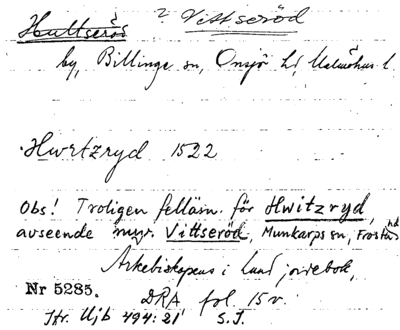 Hultseröd ? Vittseröd
by, Billinge sn, Onsjö hd, Malmöhus l.
Hwrtzryd 1522
Obs! Troligen felläsn. för Hwitzryd,
avseende nuv. Vittseröd, Munkarps sn, Frosta hd
Arkebiskopens i Lund jordebok,
Nr 5285. DRA fol. 15 v.
Jfr. Ujb 494:21 S.J.